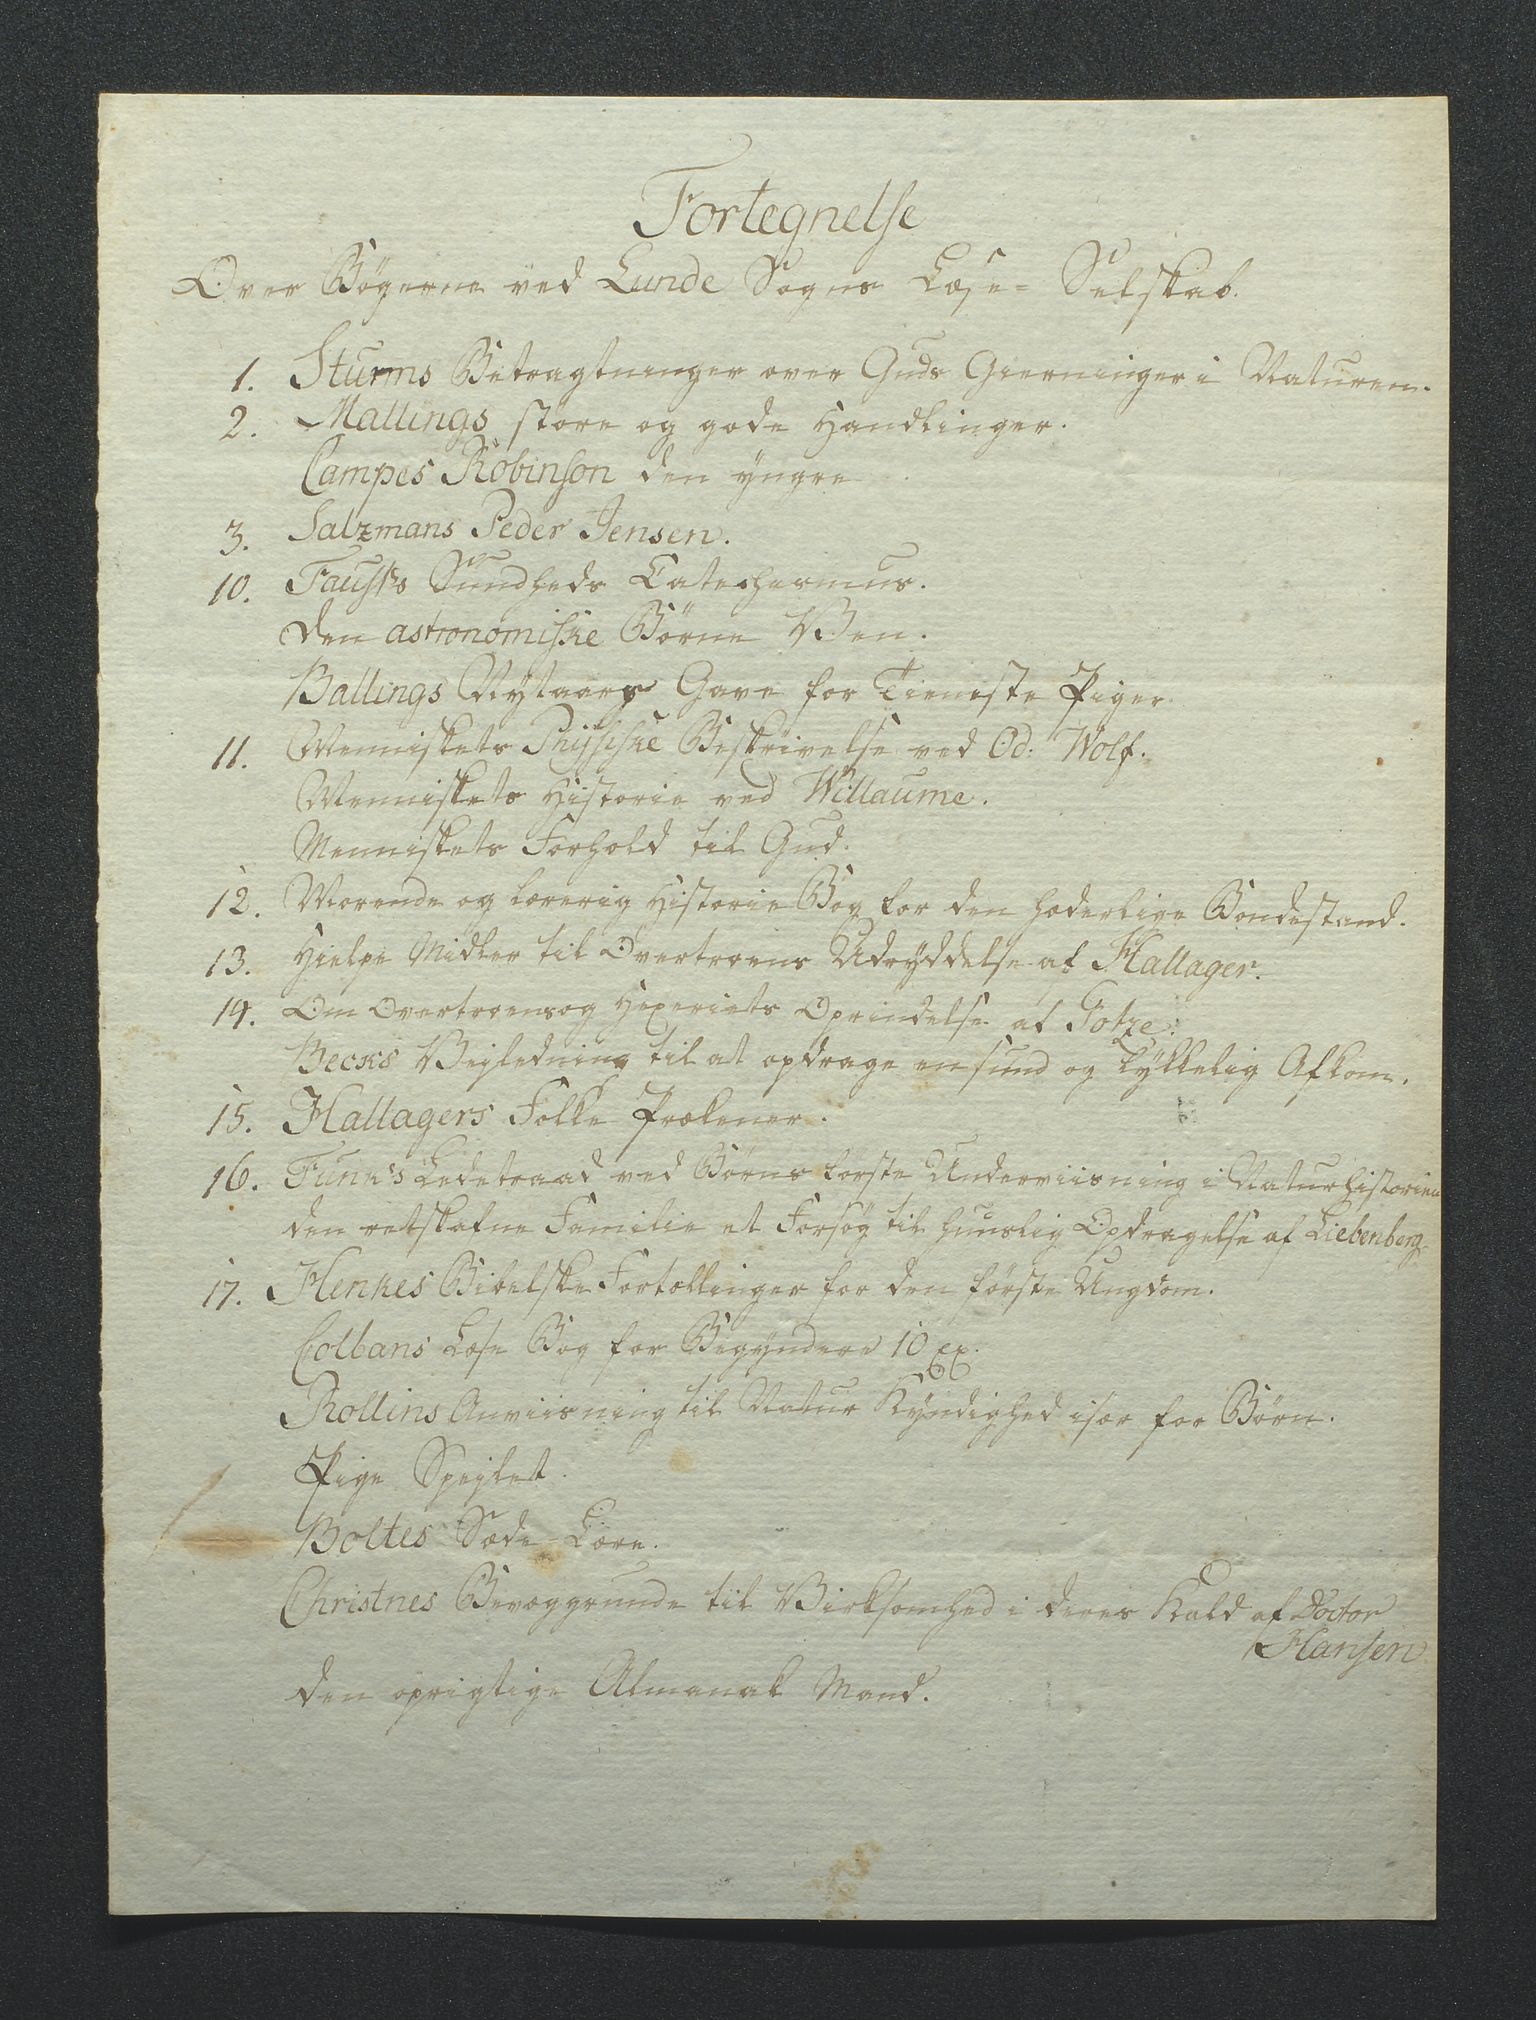 Fortegnelse
Over Bøgerne ved Lunde Sogns Læse-Selskab.
1. Sturms Betragtninger over Guds Gierninger i Naturen.
2. Mallings store og gode Handlinger.
Campes Robinson den yngre
3. Salzmans Peder Jensen.
10. Faust's Sundheds Catechesmus.
Den astronomiske Börne Ven.
Ballings Nytaars Gave for Tieneste Piger.
11. Menniskets Physiske Beskrivelse ved Od: Wolf.
Menniskets Historie ved Willaume.
Menniskets Forhold til Gud.
12. Morende og lærerig Historie Bog for den hæderlige Bondestand.
13. Hielpe Midler til Overtroens Udryddelse af Hallager.
14. Om Overtroens og Hexeriets Oprindelse af Gotze.
Becks Veiledning til at opdrage en sund og lykkelig Afkom.
15. Hallagers Folke Prækener.
16. Funk's Ledetraad ved Børns første Underviisning i Naturhistorien
den retskafne Familie et Forsøg til huuslig Opdragelse af Liebenberg
17. Henkes Bibelske Fortællinger for den første Ungdom.
Colbans Læse Bog for Begyndere 10 ex.
Rollins Anviisning til Natur Kyndighed især for Børn.
Pige Speilet.
Boltes Sæde Lære.
Christnes Bevæggrunde til Virksomhed i deres Kald af Doctor
Hansen
den oprigtige Almanak Mand.